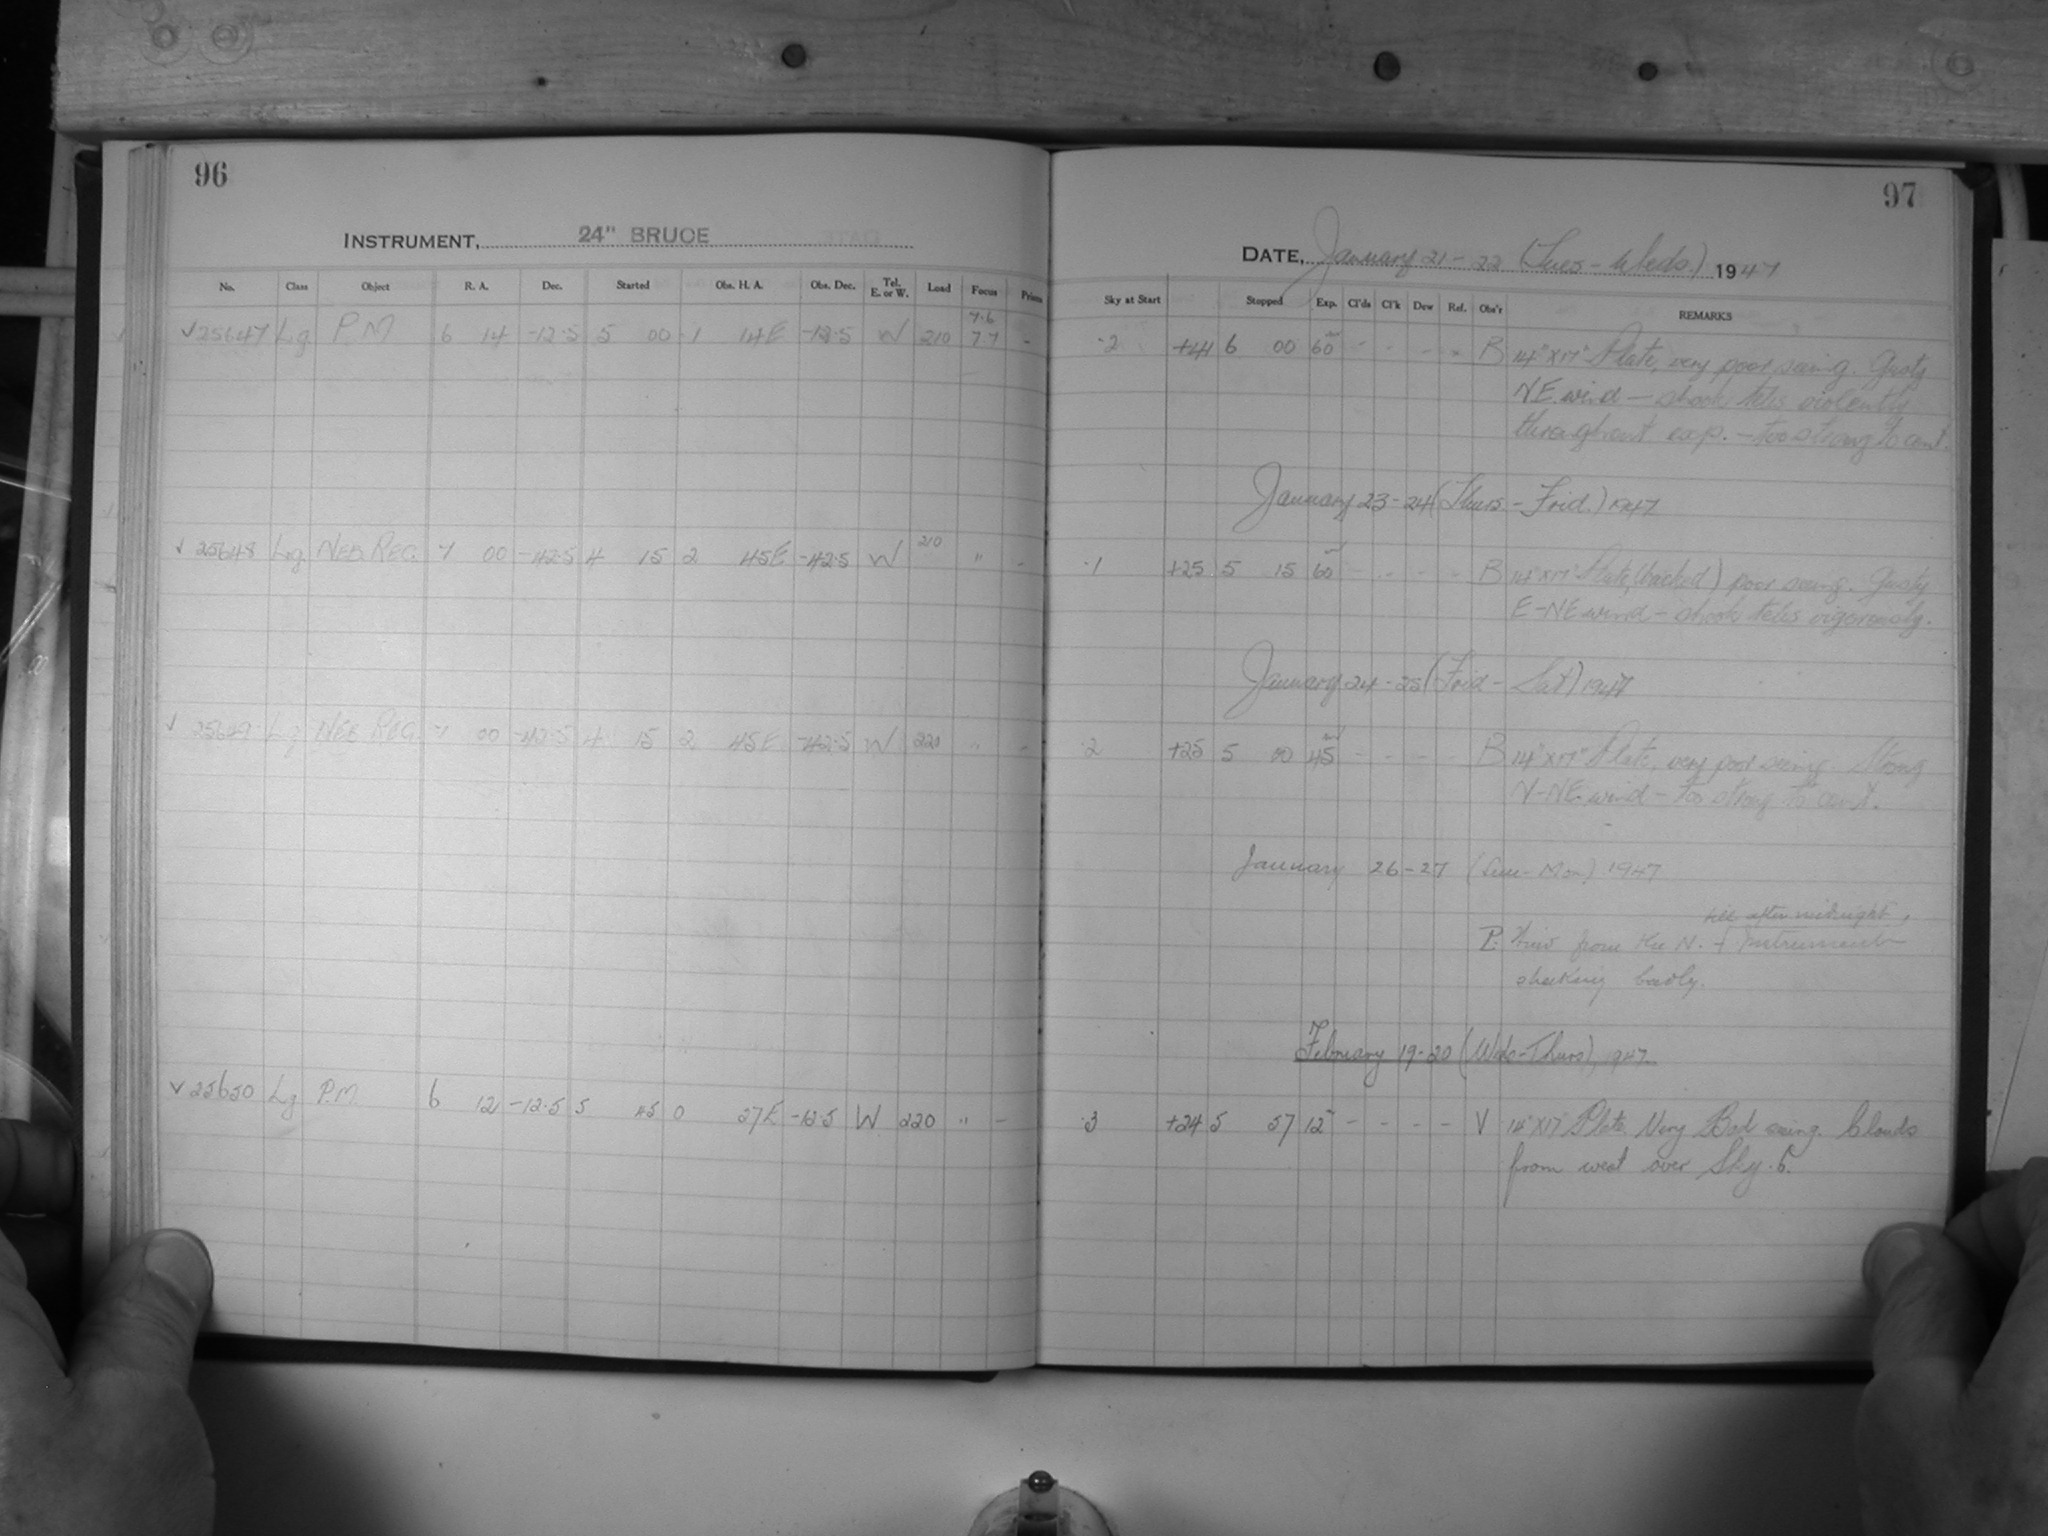 96
INSTRUMENT, 24" BRUCE
No. Class Object R. A. Dec. Started Obs. H. A. Obs. Dec. Tel. E. or W. Load Focus Prism
7.6
✓25647 Lg P.M 6 14 -12.5 5 00 -1 14E -12.5 W 210 7.7 -
✓ 25648 Lg NEB. REG. 7 00 -42.5 4 15 2 45E -42.5 W 210 " -
✓ 25649 Lg NEB REG. 7 00 -42.5 4 15 2 45E -42.5 W 220 " -
✓25650 Lg P.M. 6 12 -12.5 5 45 0 27E -12.5 W 220 " -
97
DATE, January 21-22 (Tues-Weds) 1947
Sky at Start Stopped Exp. Cl'ds Cl'k Dew Ref. Obs'r REMARKS
.2 +41 6 00 60 - - - - B 14"X17" Plate, very poor seeing. Gusty
N.E. wind - shook teles violently
throughout exp. - too strong to cont.
January 23-24 (Thurs-Frid.) 1947
.1 +25 5 15 60 - - - - B 14"X17" Plate, (backed) poor seeing. Gusty
E-NE wind - shook teles vigorously.
January 24-25 (Frid-Sat) 1947
.2 +25 5 00 45 - - - - B 14"X17" Plate, very poor seeing. Strong
N-NE. wind - too strong to cont.
January 26-27 (Sun-Mon) 1947
till after midnight,
P. Wind from the N. + Instrument
shaking badly.
February 19-20 (Wds-Thurs), 1947
.3 +24 5 57 12 - - - - V 14"X17" Plate. Very Bad seeing. Clouds
from west over Sky .6.